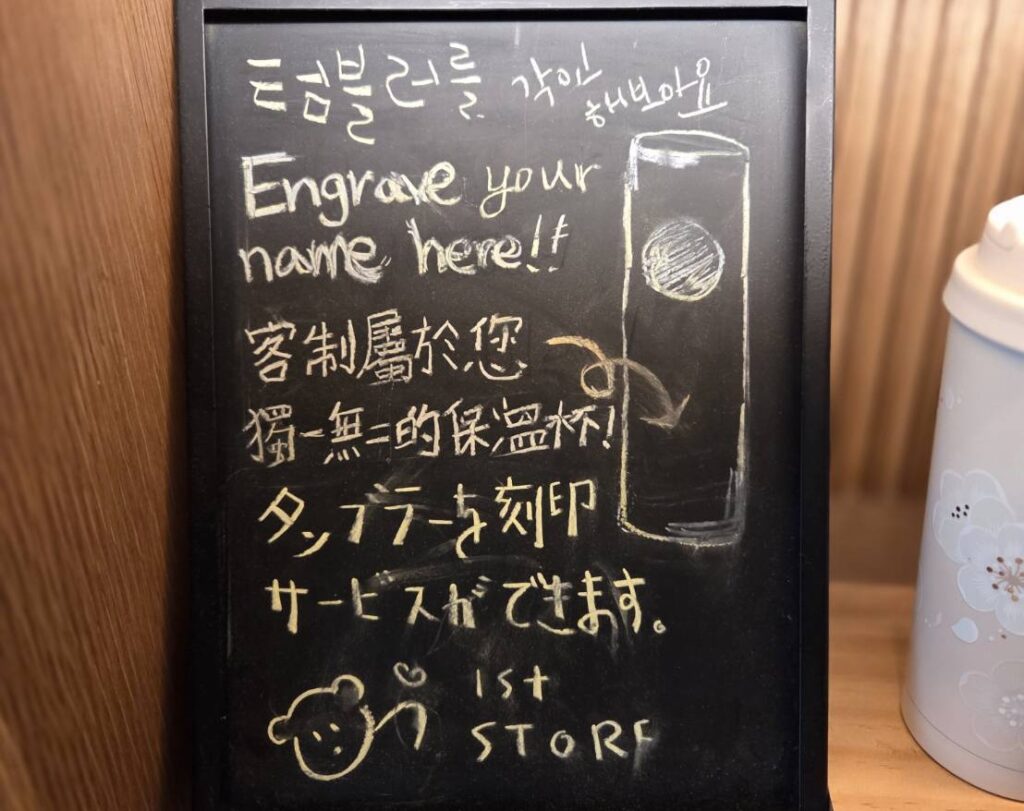 텀블러를 각인 해보아요
Engrave your
name here!!
客制屬於您
獨一無二的保溫杯!
タンブラーを刻印
サービスができます。
1st
STORE